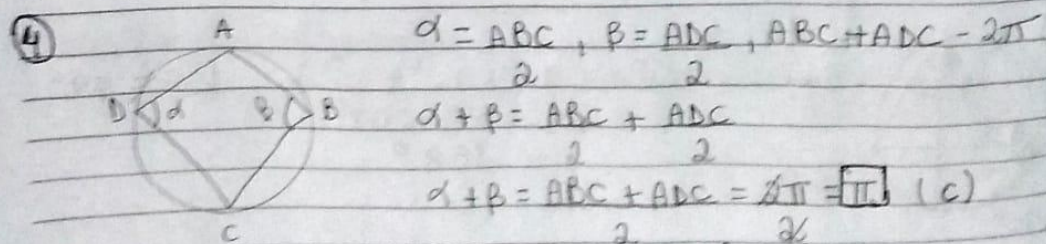 4
A
D α β B
C
α = ABC/2 , β = ADC/2 , ABC + ADC - 2π
α + β = ABC/2 + ADC/2
α + β = ABC + ADC/2 = 2π/2 = π (C)